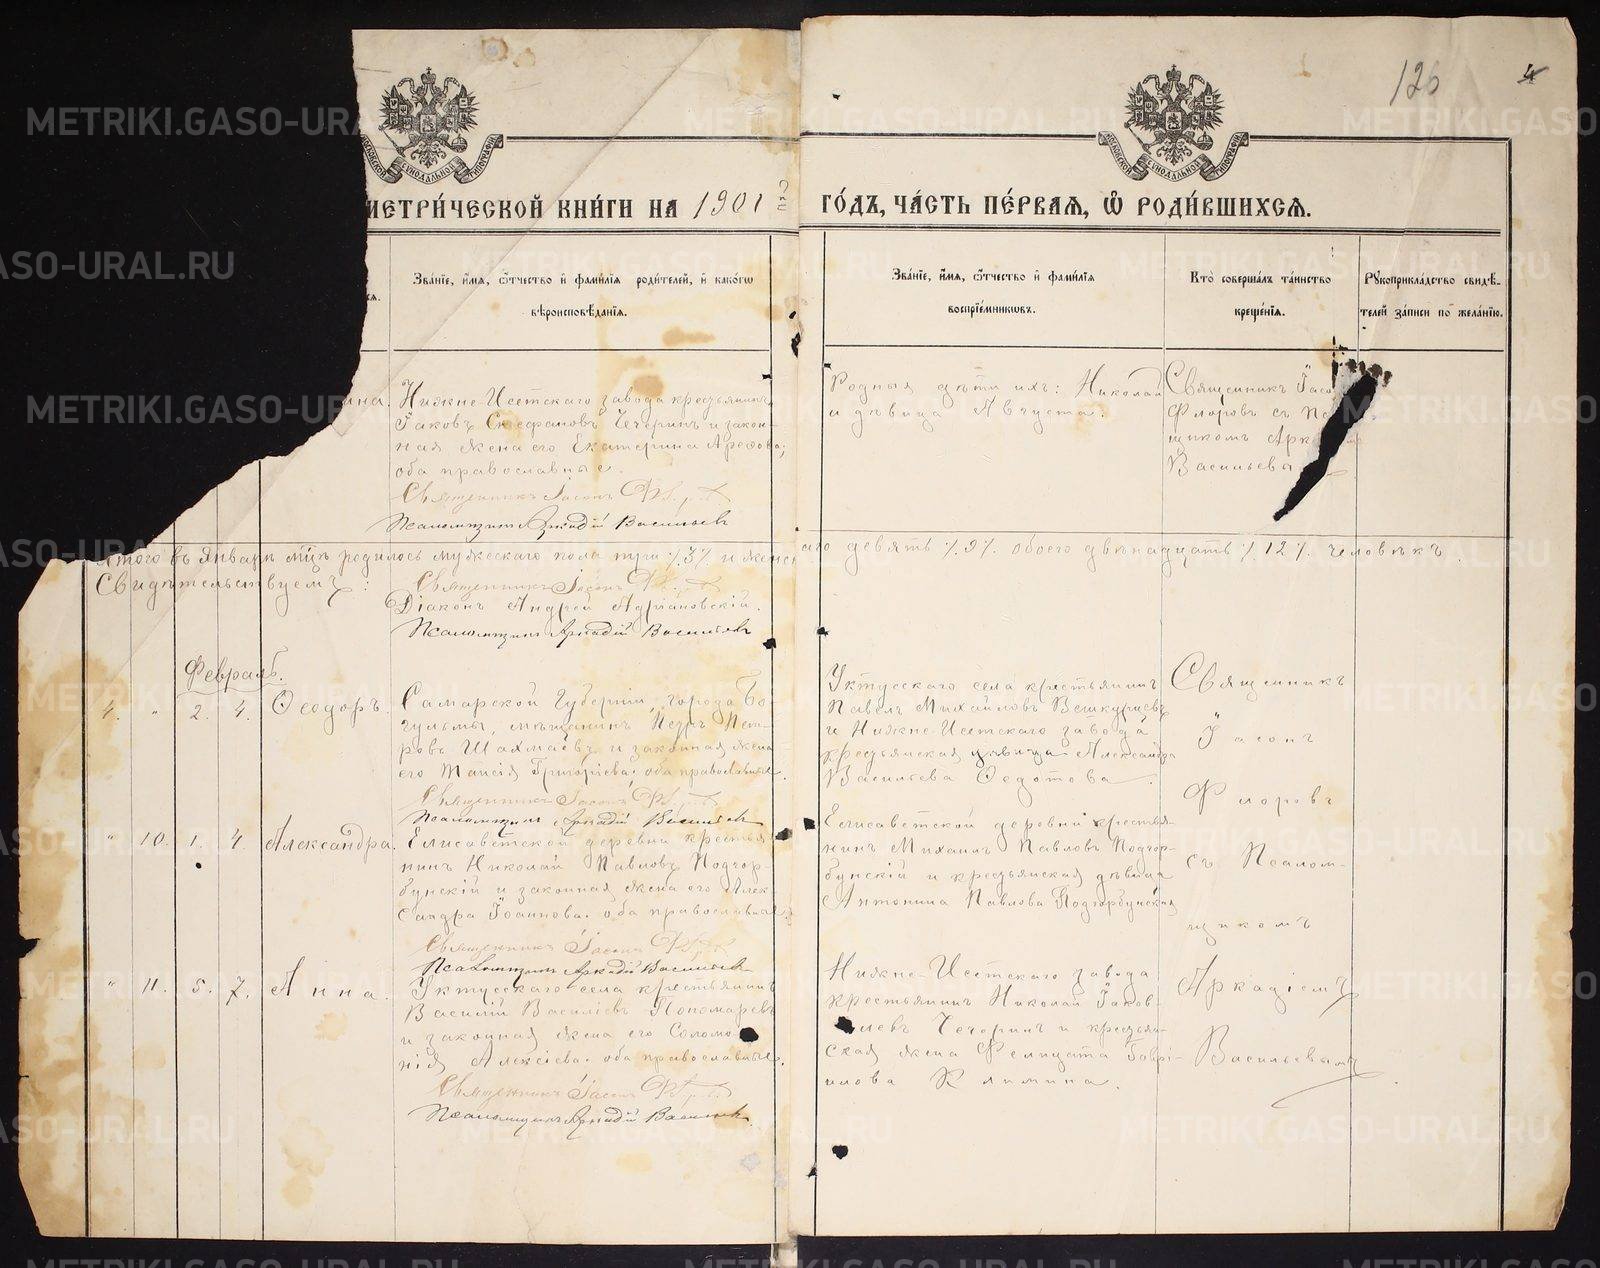 126 4
МЕТРИ́ЧЕСКОЙ КНИ́ГИ НА 1901 ГО́ДЪ, ЧА́СТЬ ПЕ́РВАЯ, Ѿ РОДИ́ВШИХСЯ.
Зва́нїе, и́мя, ѻ҆́тчество и҆ фами́лїя роди́телей, и҆ како́гѡ
вѣроисповѣ́данїя.
Зва́нїе, и́мя, ѻ҆́тчество и҆ фами́лїя
воспрїе́мникѡвъ.
Кто̀ соверша́лъ та́инство
креще́нїя.
Рꙋкоприкла́дство свидѣ́-
телей за́писи по жела́нїю.
ина. Нижне-Исетскаго завода крестьянинъ
Іаковъ Стефановъ Чечеринъ и закон-
ная жена его Екатерина
оба православные.
Священникъ Іасонъ
Псаломщикъ Аркадій Васильевъ
Родныя дѣти ихъ: Николай
и дѣвица Августа.
Священникъ Іасо
Флоровъ съ Пс
щикомъ Арк
Васильевы
Итого въ Январѣ м҃цѣ родилось мужескаго пола три /.3/. и женскаго девять /.9/. обоего двѣнадцать /.12/. человѣкъ
Свидѣтельствуемъ:
Священникъ Іасонъ
Діаконъ Андрей Адріановскій.
Псаломщикъ Аркадій Васильевъ
Февраль.
4. " 2. 4. Ѳеодоръ. Самарской Губерніи, города Бу-
гульмы, мѣщанинъ Петръ Пет-
ровъ Шахмаевъ и законная жена
его Таисія Григоріева. оба православные.
Священникъ Іасонъ
Псаломщикъ Аркадій Васильевъ
Уктусскаго села крестьянинъ
Павелъ Михайловъ
и Нижне-Исетскаго завода
крестьянская дѣвица Александра
Васильева Ѳедотова.
" 10. 1. 4. Александра. Елисаветской деревни крестья-
нинъ Николай Павловъ Подгор-
бунскій и законная жена его Алек-
сандра Іоаннова. оба православные.
Священникъ Іасонъ
Псаломщикъ Аркадій Васильевъ
Елисаветской деревни крестья-
нинъ Михаилъ Павловъ Подгор-
бунскій и крестьянская дѣвица
Антонина Павлова Подгорбунская
" 11. 5. 7. Анна. Уктусскаго села крестьянинъ
Василій Василіевъ Пономаревъ
и законная жена его Соломо
нія Алексіева. оба православные.
Священникъ Іасонъ
Псаломщикъ Аркадій Васильевъ
Нижне-Исетскаго завода
крестьянинъ Николай Іаков-
левъ Чечеринъ и крестьян-
ская жена Фелицата Гаврі-
илова Климина.
Священникъ
Іасонъ
Флоровъ
съ Псалом-
щикомъ
Аркадіемъ
Васильевымъ
METRIKI.GASO-URAL.RU